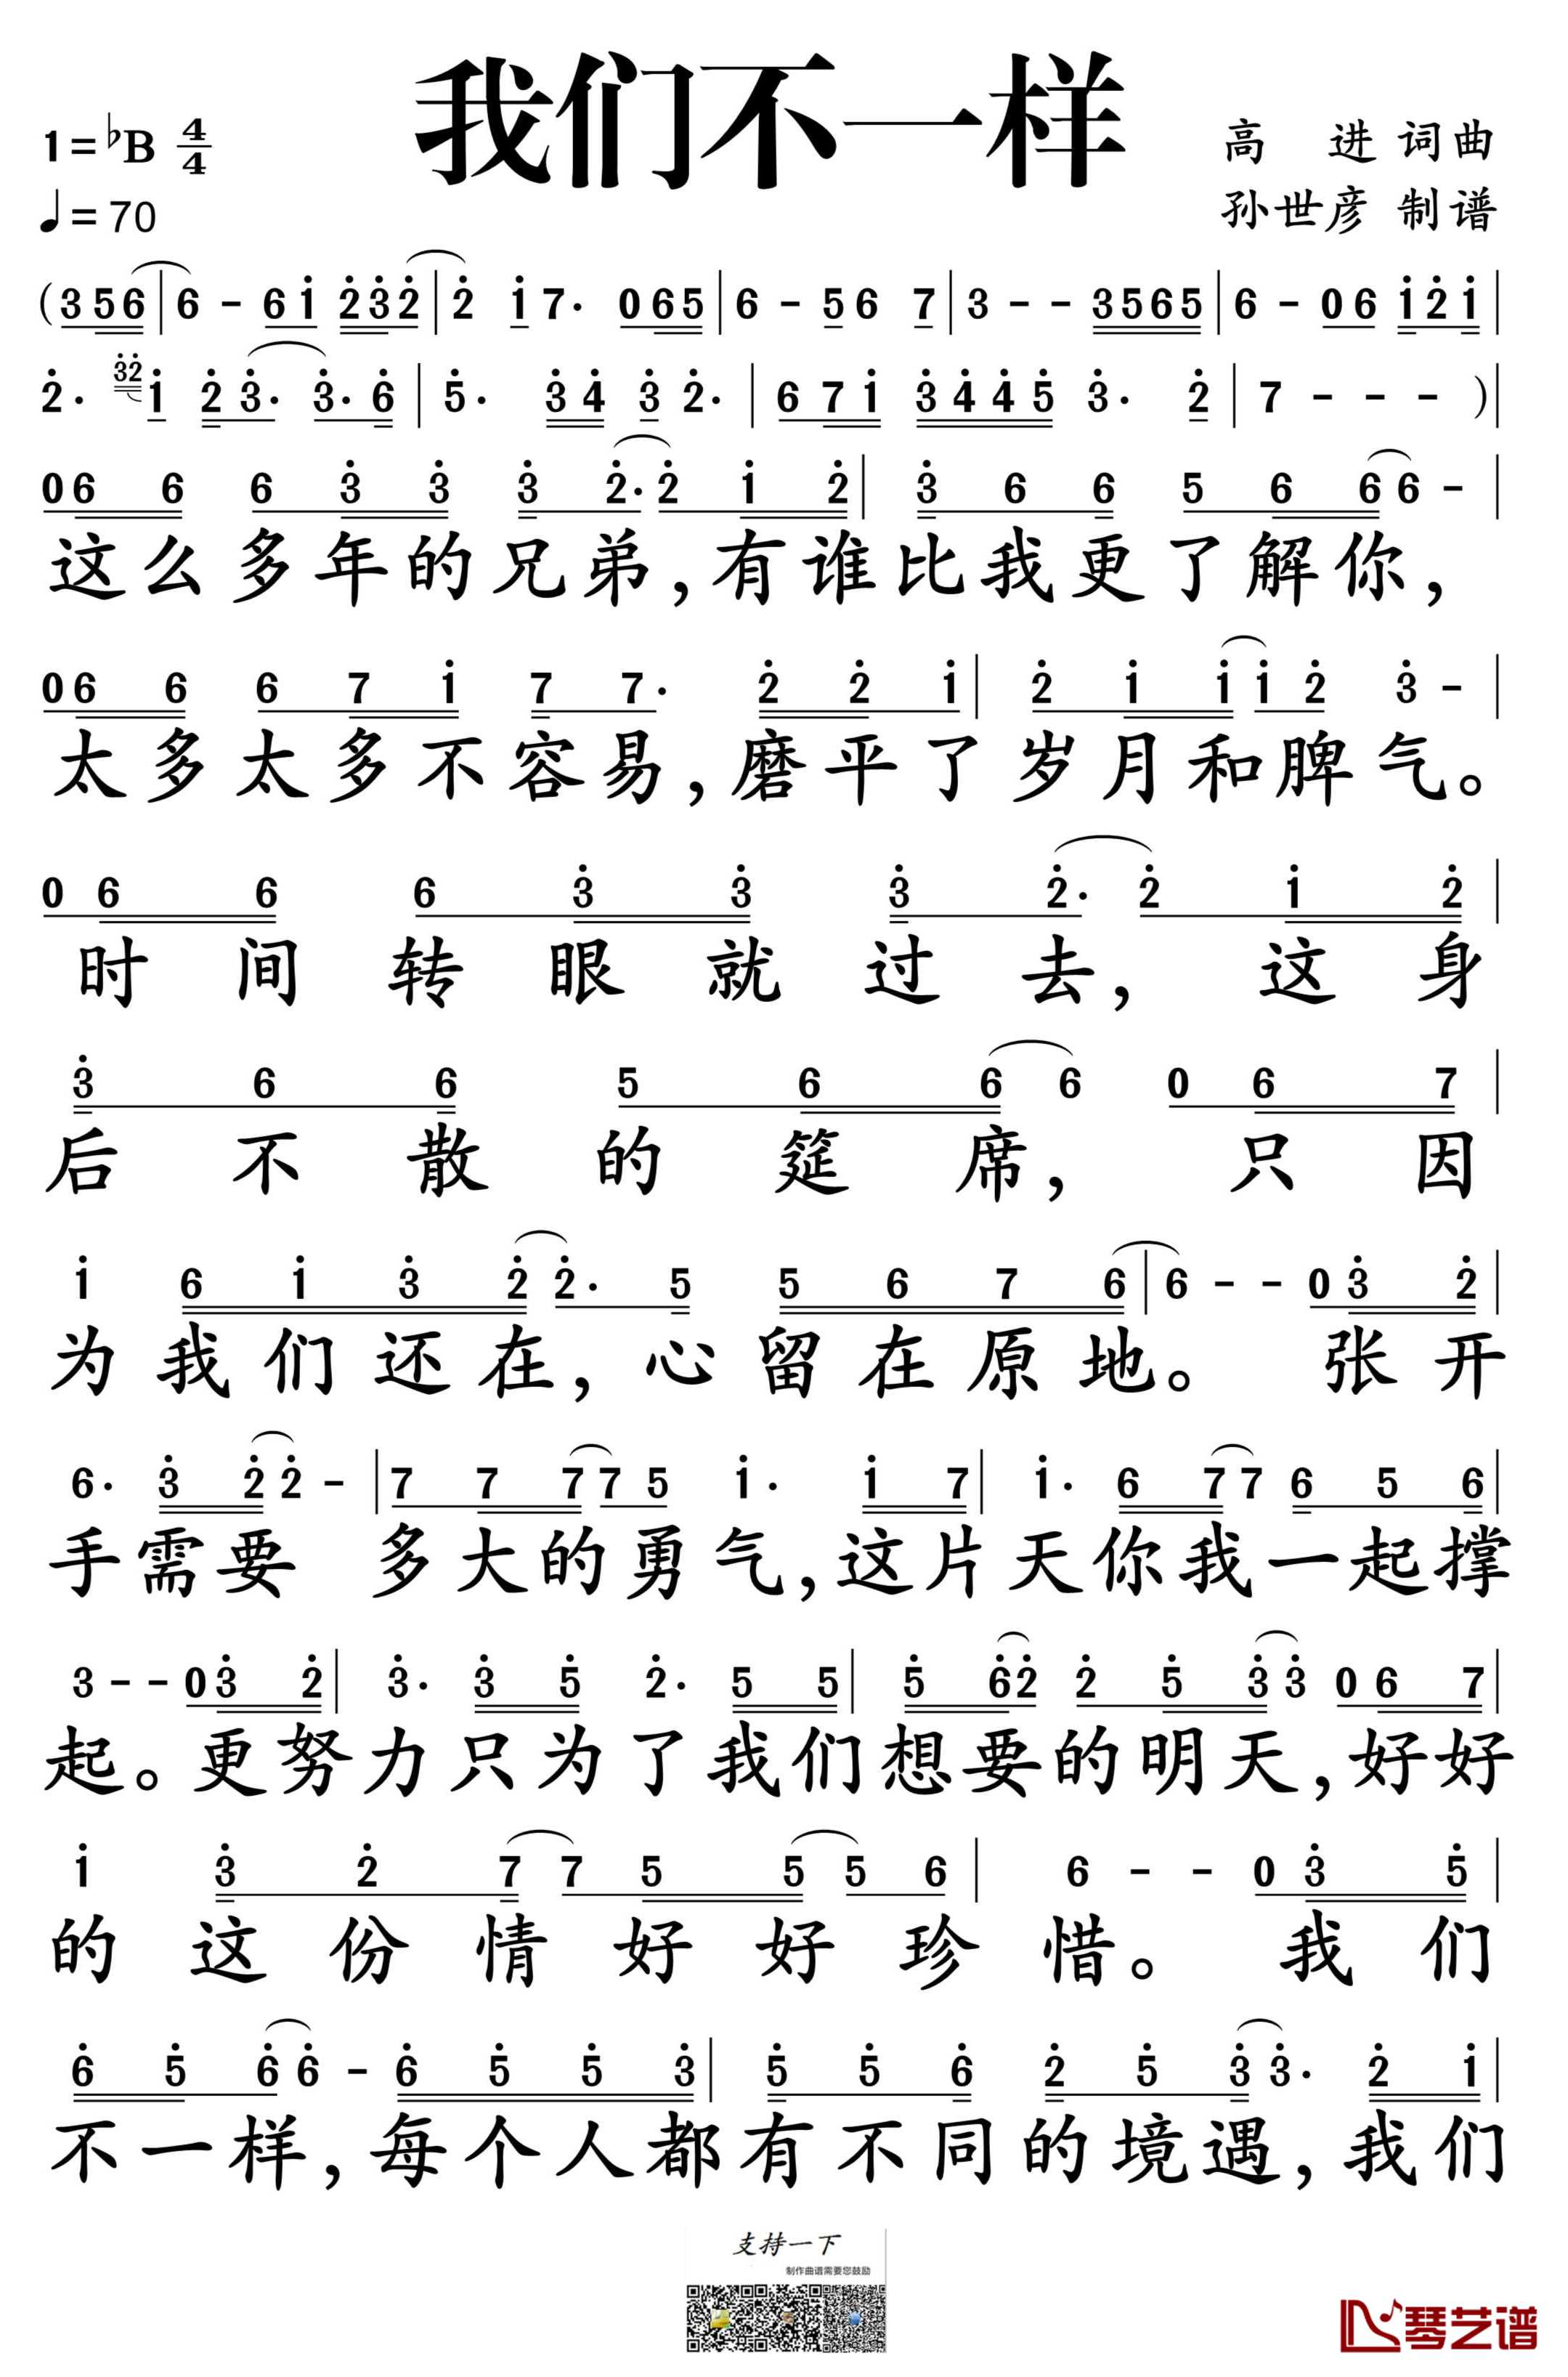 我们不一样
1=♭B 4/4
高 进 词曲
♩=70
孙世彦 制谱
(3 5 6 | 6 - 6 i̇ 2̇ 3̇ 2̇ | 2̇ i̇ 7· 0 6 5 | 6 - 5 6 7 | 3 - - 3 5 6 5 | 6 - 0 6 i̇ 2̇ i̇ |
2̇· 3̇2̇ i̇ 2̇ 3̇· 3̇· 6̇ | 5̇· 3̇ 4̇ 3̇ 2̇· | 6 7 i̇ 3̇ 4̇ 4̇ 5̇ 3̇· 2̇ | 7 - - - ) |
0 6 6 6 3̇ 3̇ 3̇ 2̇· 2̇ i̇ 2̇ | 3̇ 6 6 5 6 6 6 - |
这么多年的兄弟,有谁比我更了解你,
0 6 6 6 7 i̇ 7 7· 2̇ 2̇ i̇ | 2̇ i̇ i̇ i̇ 2̇ 3̇ - |
太多太多不容易,磨平了岁月和脾气。
0 6 6 6 3̇ 3̇ 3̇ 2̇· 2̇ i̇ 2̇ |
时间转眼就过去,这身
3̇ 6 6 5 6 6 6 0 6 7 |
后不散的筵席,只因
i̇ 6 i̇ 3̇ 2̇ 2̇· 5 5 6 7 6 | 6 - - 0 3̇ 2̇ |
为我们还在,心留在原地。张开
6· 3̇ 2̇ 2̇ - | 7 7 7 7 5 i̇· i̇ 7 | i̇· 6 7 7 6 5 6 |
手需要多大的勇气,这片天你我一起撑
3 - - 0 3̇ 2̇ | 3̇· 3̇ 5̇ 2̇· 5 5 | 5̇ 6̇ 2̇ 2̇ 5̇ 3̇ 3̇ 0 6 7 |
起。更努力只为了我们想要的明天,好好
i̇ 3̇ 2̇ 7 7 5 5 5 6 | 6 - - 0 3̇ 5̇ |
的这份情好好珍惜。我们
6̇ 5̇ 6̇ 6̇ - 6̇ 5̇ 5̇ 3̇ | 5̇ 5̇ 6̇ 2̇ 5̇ 3̇ 3̇· 2̇ i̇ |
不一样,每个人都有不同的境遇,我们
支持一下
制作曲谱需要您鼓励
琴艺谱